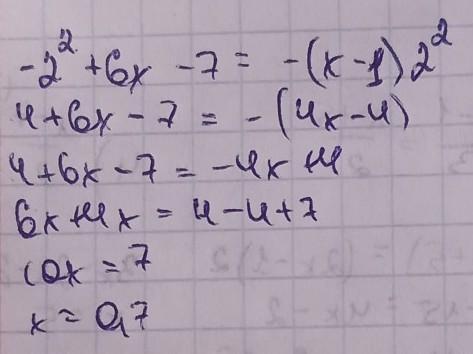 -2² + 6x - 7 = -(x - 1) 2²
4 + 6x - 7 = -(4x - 4)
4 + 6x - 7 = -4x + 4
6x + 4x = 4 - 4 + 7
10x = 7
x = 0,7